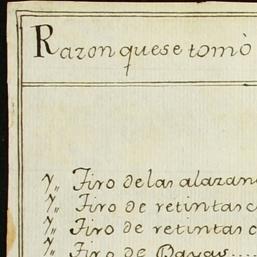 Razon que se tomò
y,, Tiro de las alazan
y,, Tiro de retintas c
y,, Tiro de retintas c
y,, Tiro de Bayas....